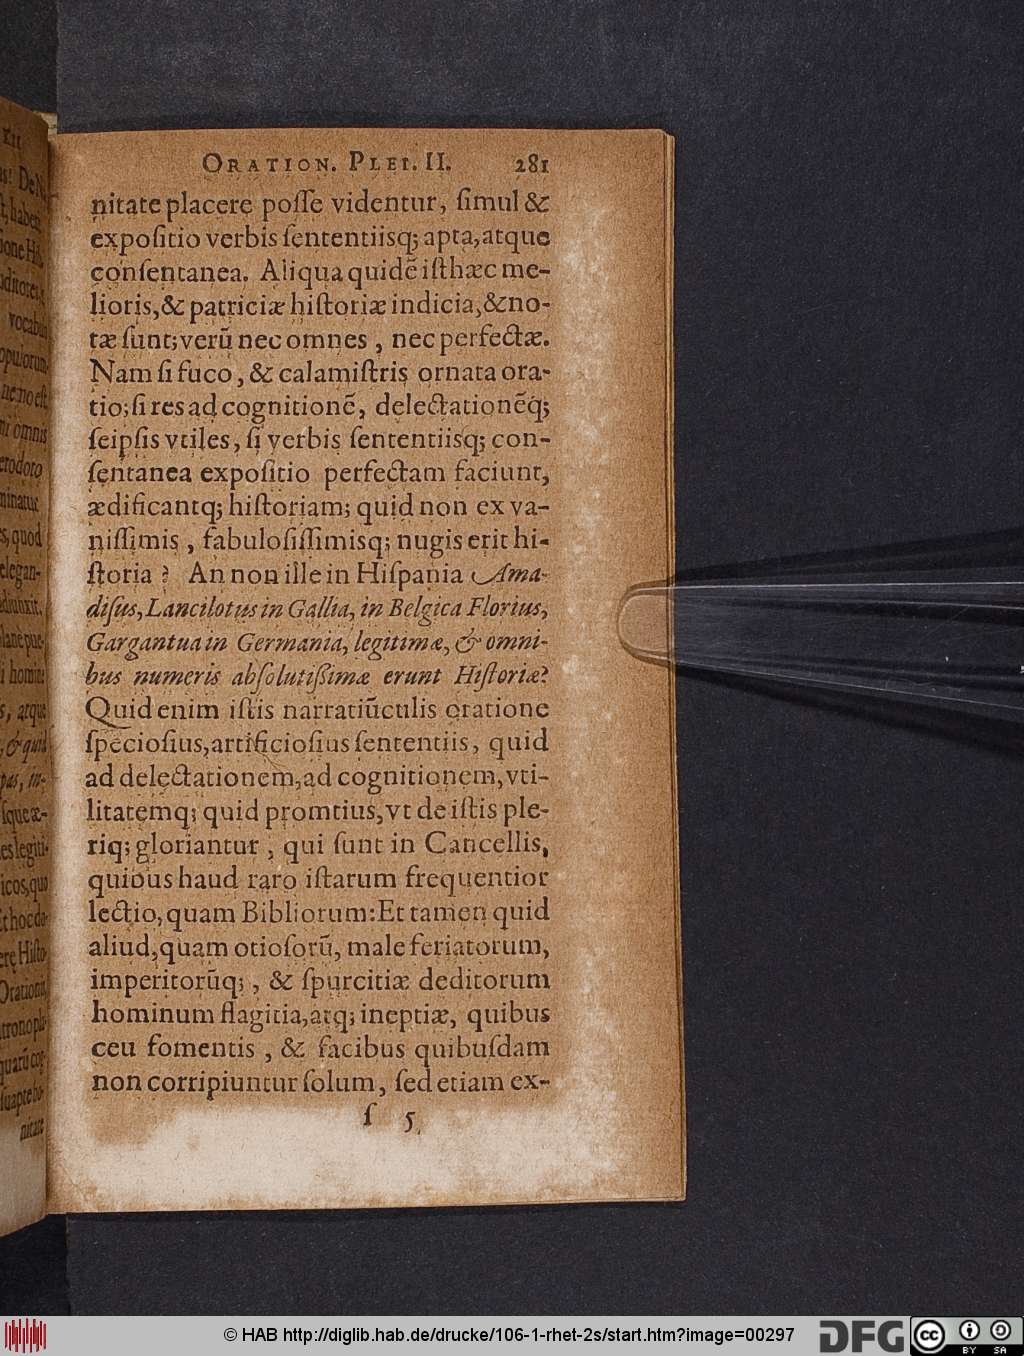 ORATION. PLEI. II. 281
nitate placere poſſe videntur, ſimul &
expoſitio verbis ſententiisq; apta, atque
conſentanea. Aliqua quidẽ iſthæc me-
lioris, & patriciæ hiſtoriæ indicia, & no-
tæ ſunt; verũ nec omnes, nec perfectæ.
Nam ſi fuco, & calamiſtris ornata ora-
tio; ſi res ad cognitionẽ, delectationẽq;
ſeipſis vtiles, ſi verbis ſententiisq; con-
ſentanea expoſitio perfectam faciunt,
ædificantq; hiſtoriam; quid non ex va-
niſſimis, fabuloſiſſimisq; nugis erit hi-
ſtoria? An non ille in Hiſpania Ama-
diſus, Lancilotus in Gallia, in Belgica Florius,
Gargantua in Germania, legitimæ, & omni-
bus numeris abſolutißimæ erunt Hiſtoriæ?
Quid enim iſtis narratiũculis oratione
ſpecioſius, artificioſius ſententiis, quid
ad delectationem, ad cognitionem, vti-
litatemq; quid promtius, vt de iſtis ple-
riq; gloriantur, qui ſunt in Cancellis,
quibus haud raro iſtarum frequentior
lectio, quam Bibliorum: Et tamen quid
aliud, quam otioſorũ, male feriatorum,
imperitorũq;, & ſpurcitiæ deditorum
hominum flagitia, atq; ineptiæ, quibus
ceu fomentis, & facibus quibuſdam
non corripiuntur ſolum, ſed etiam ex-
ſ 5
© HAB http://diglib.hab.de/drucke/106-1-rhet-2s/start.htm?image=00297
DFG
cc BY SA